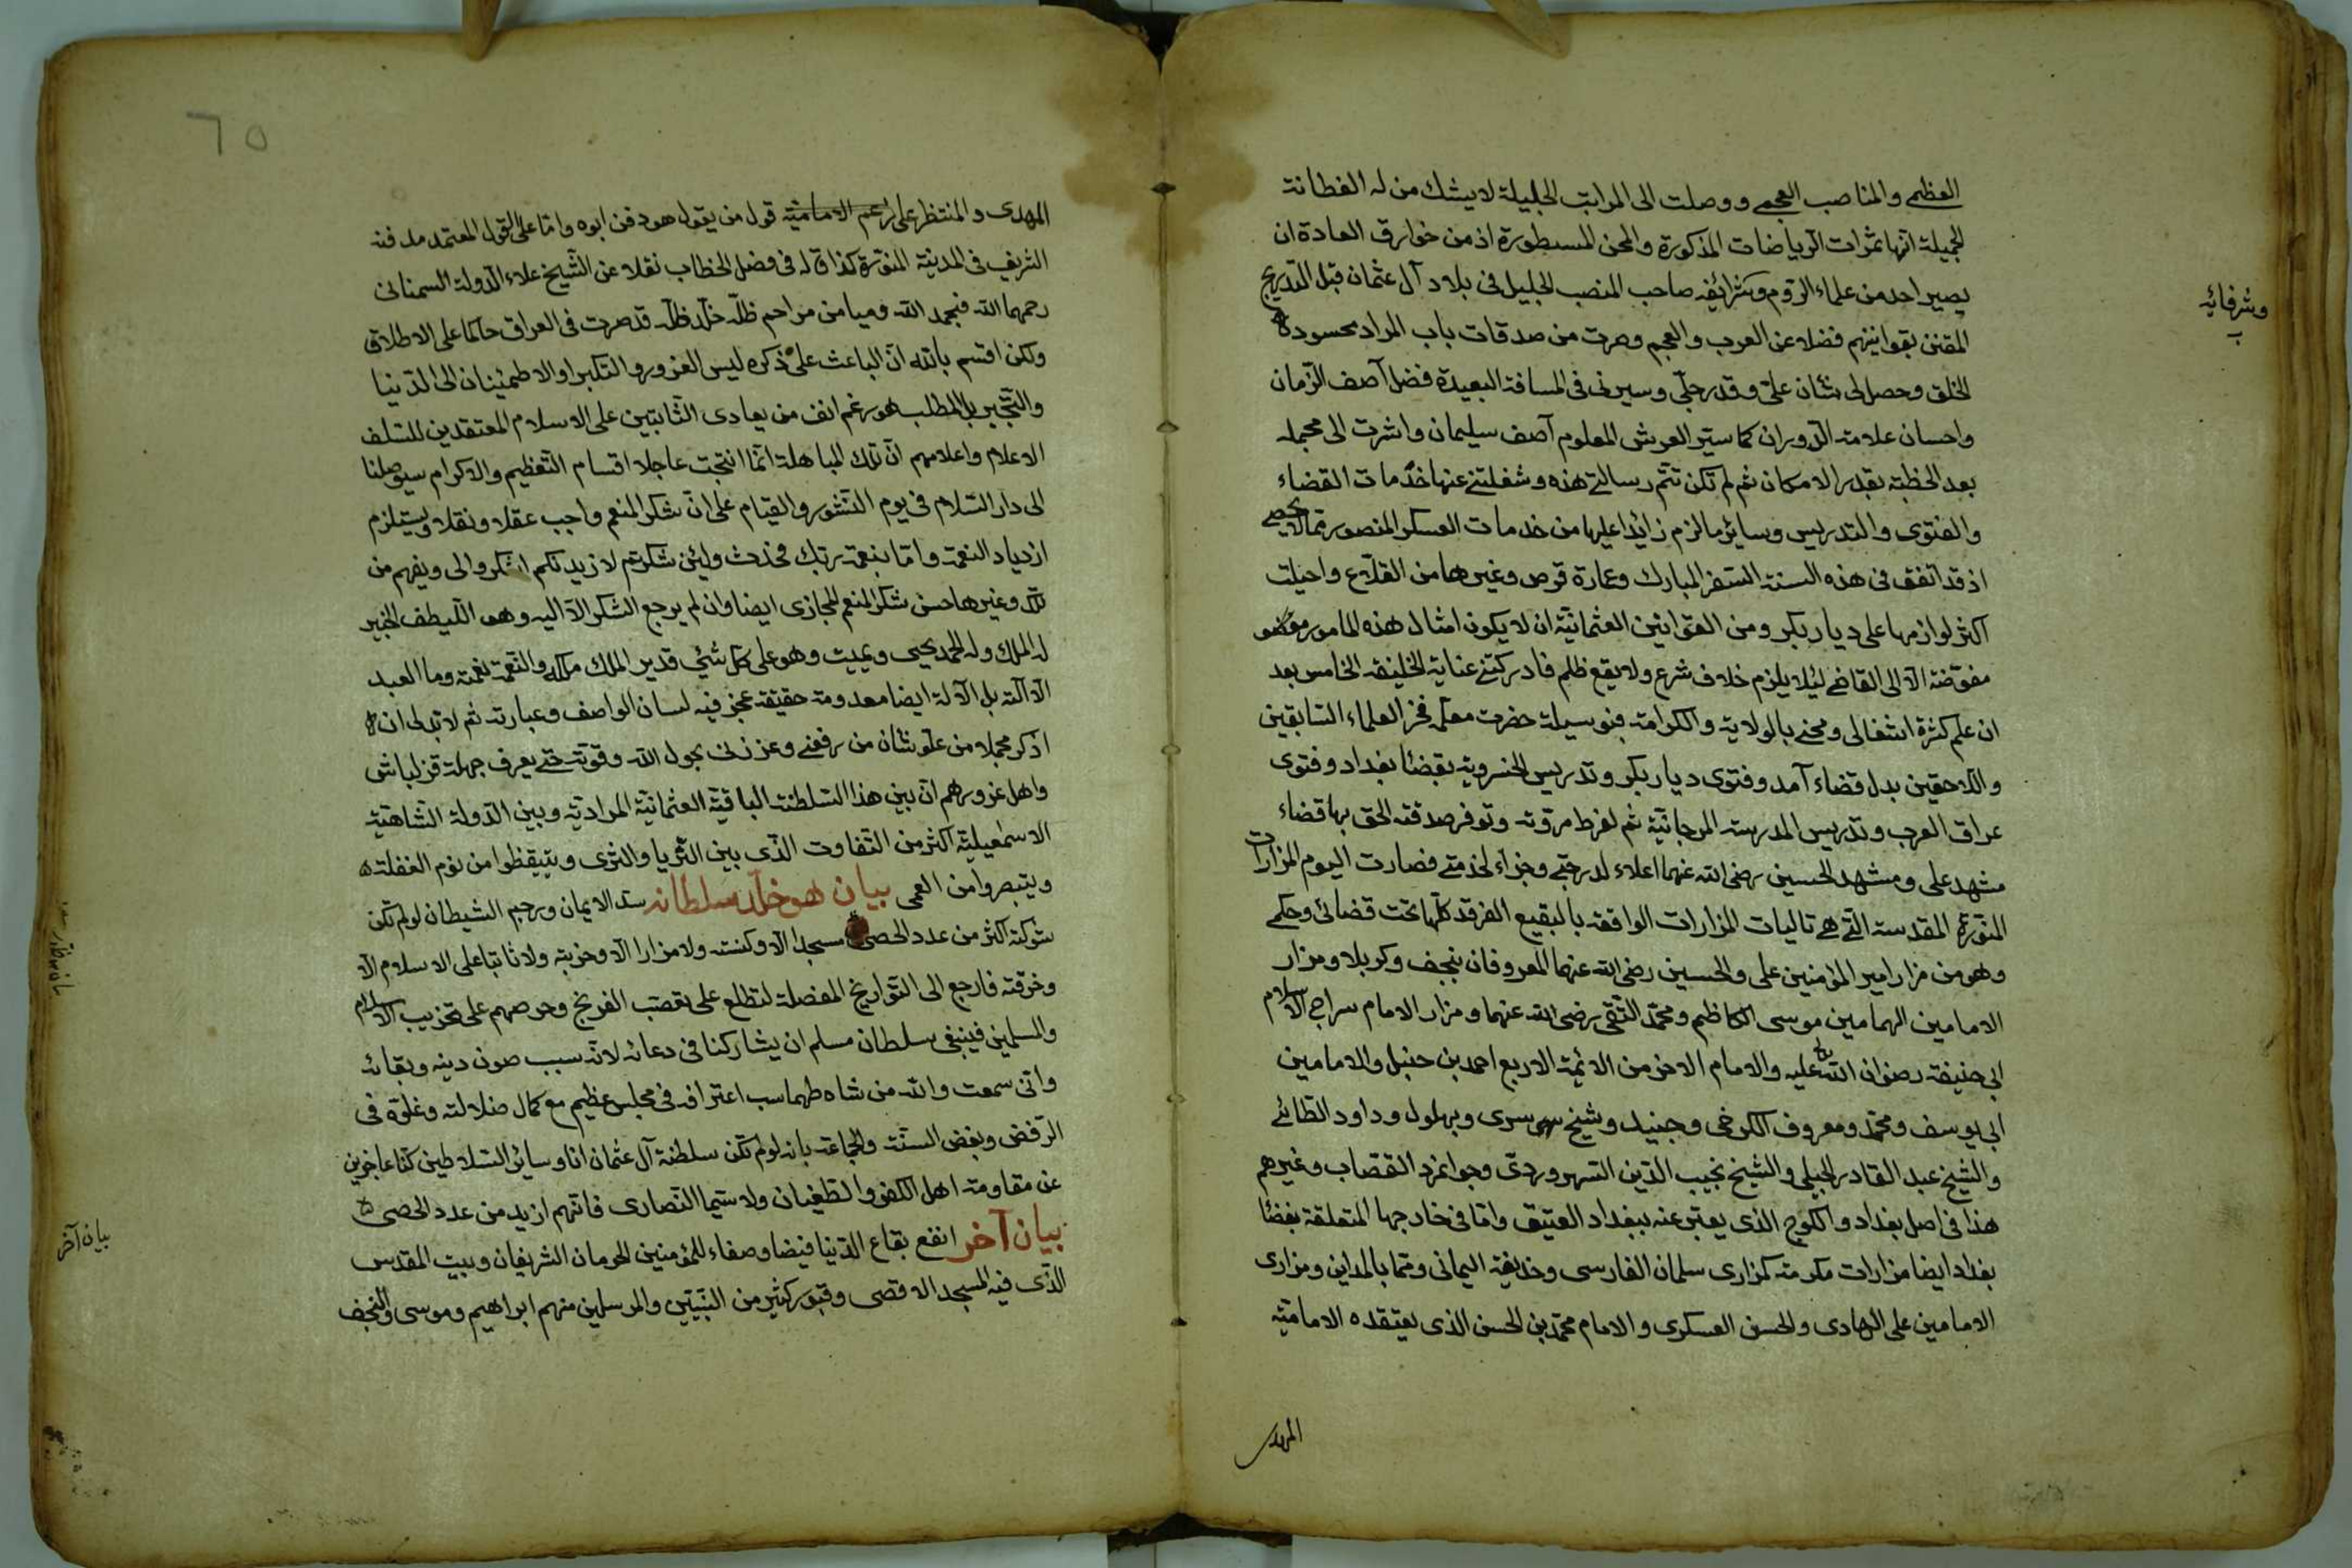 العظمى والمناصب العجمى ووصلت الى المراتب الجليلة لا يشك من له الفطانة
الجميلة انها ثمرات الرياضات المذكورة والمحن المسطورة اذ من خوارق العادة ان
يصير احد من علماء الروم وشرائفه صاحب المنصب الجليل فى بلاد آل عثمان قبل التدريج
وشرفائه
المقنن بقوانينهم فضلا عن العرب والعجم وصرت من صدقات باب المراد محسود
الخلق وحصل لى شان علىّ وقدر جلىّ وسيرنى فى المسافة البعيدة فضل آصف الزمان
واحسان علامة الدوران كما سيّر العرش المعلوم آصف سليمان واشرت الى مجمله
بعد الخطبة بقدر الامكان ثم لم تكن تتم رسالتى هذه وشغلتنى عنها خدمات القضاء
والفتوى والتدريس وسائر ما لزم زائدا عليها من خدمات العسكر المنصور مما لا يحصى
اذ قد اتفق فى هذه السنة السفر المبارك وعمارة قرص وغيرها من القلاع واحيلت
اكثر لوازمها على ديار بكر ومن القوانين العثمانية ان لا يكون امثال هذه المامور
مفوضة الا الى القاضى ليلا يلزم خلاف شرع ولا يقع ظلم فادركتنى عناية الخليفة الخامس بعد
ان علم كثرة اشغالى ومحنى بالولاية والكرامة فبوسيلة حضرت معلمه فخر العلماء السابقين
واللاحقين بدل قضاء آمد وفتوى ديار بكر وتدريس الخسروية بقضاء بغداد وفتوى
عراق العرب وتدريس المدرسة المرجانية ثم لفرط مروته وتوفر صدقته الحق بها قضاء
مشهد على ومشهد الحسين رضى الله عنهما اعلاء لدرجتى وجزاء لخدمتى فصارت اليوم المزارات
المنورة المقدسة التى هى تاليات المزارات الواقعة بالبقيع الغرقد كلها تحت قضائى وحكمى
وهو من مزار امير المؤمنين على والحسين رضى الله عنهما المعروفان بنجف وكربلا ومزار
الامامين الهمامين موسى الكاظم ومحمد التقى رضى الله عنهما ومزار الامام سراج الاسلام
ابى حنيفة رضوان الله عليه والامام الاخر من الائمة الاربع احمد بن حنبل والامامين
ابى يوسف ومحمد ومعروف الكرخى وجنيد وشيخ سرى وبهلول وداود الطائى
والشيخ عبد القادر الجيلى والشيخ نجيب الدين السهروردى وجوانمرد القصاب وغيرهم
هذا فى اصل بغداد والكرخ الذى يعبر عنه ببغداد العتيق واما فى خارجها المتعلقة بقضاء
بغداد ايضا مزارات مكرمة كمزارى سلمان الفارسى وحذيفة اليمانى وهما بالمداين ومزارى
الامامين على الهادى والحسن العسكرى والامام محمد بن الحسن الذى يعتقده الامامية
المهدى
٦٥
المهدى والمنتظر على زعم الامامية قول من يقول هو دفن ابوه واما على القول المعتمد مدفنه
الشريف فى المدينة المنورة كذا قاله فى فصل الخطاب نقلا عن الشيخ علاء الدولة السمنانى
رحمهما الله فبحمد الله وميامن مراحم ظله خلد ظله قد صرت فى العراق حاكما على الاطلاق
ولكن اقسم بالله ان الباعث على ذكره ليس الغرور والتكبر او الاطمئنان الى الدنيا
والتجبر بل المطلب هو رغم انف من يعادى الثابتين على الاسلام المعتقدين للسلف
الاعلام واعلامهم ان تلك المباهلة انما انتجت عاجلا اقسام التعظيم والاكرام سيوصلنا
الى دار السلام فى يوم النشور والقيام على ان شكر المنعم واجب عقلا ونقلا ويستلزم
ازدياد النعمة واما بنعمة ربك فحدث ولئن شكرتم لازيدنكم اشكروا لى ويفهم من
تلك وغيرها حسن شكر المنعم المجازى ايضا وان لم يرجع الشكر الا اليه وهو اللطيف الخبير
له الملك وله الحمد يحيى ويميت وهو على كل شئ قدير الملك ملكه والنعمة نعمته وما العبد
الا آلة بل الآلة ايضا معدومة حقيقة عجز فيه لسان الواصف وعبارته ثم لا بد لى ان
اذكر مجملا من علو شان من رفعنى وعززنى بحول الله وقوته حتى يعرف جهلة قزلباش
واهل غرورهم ان بين هذا السلطنة الباقية العثمانية المرادية وبين الدولة الشاهية
الاسمعيلية اكثر من التفاوت الذى بين الثريا والثرى ويتيقظوا من نوم الغفلة
ويتبصروا من العمى بيان هو خلد سلطانه سد الايمان ورجم الشيطان لو لم تكن
شوكته اكثر من عدد الحصى مسجدا الا وكنسته ولا مزارا الا وخربته ولا ثابتا على الاسلام الا
وخرقته فارجع الى التواريخ المفصلة لتطلع على تعصب الفرنج وحرصهم على تخريب الاسلام
والمسلمين فينبغى سلطان مسلم ان يشاركنا فى دعائه لانه سبب صون دينه وبقائه
وانى سمعت والله من شاه طهماسب اعترافه فى مجلس عظيم مع كمال ضلالته وغلوه فى
الرفض وبغض السنة والجماعة بانه لو لم تكن سلطنة آل عثمان انا وسائر السلاطين كنا عاجزين
عن مقاومة اهل الكفر والطغيان ولا سيما النصارى فانهم ازيد من عدد الحصى
بيان آخر
بيان آخر انفع بقاع الدنيا فيضا وصفاء للمؤمنين الحرمان الشريفان وبيت المقدس
الذى فيه المسجد الاقصى وقبور كثير من النبيين والمرسلين منهم ابراهيم وموسى والنجف